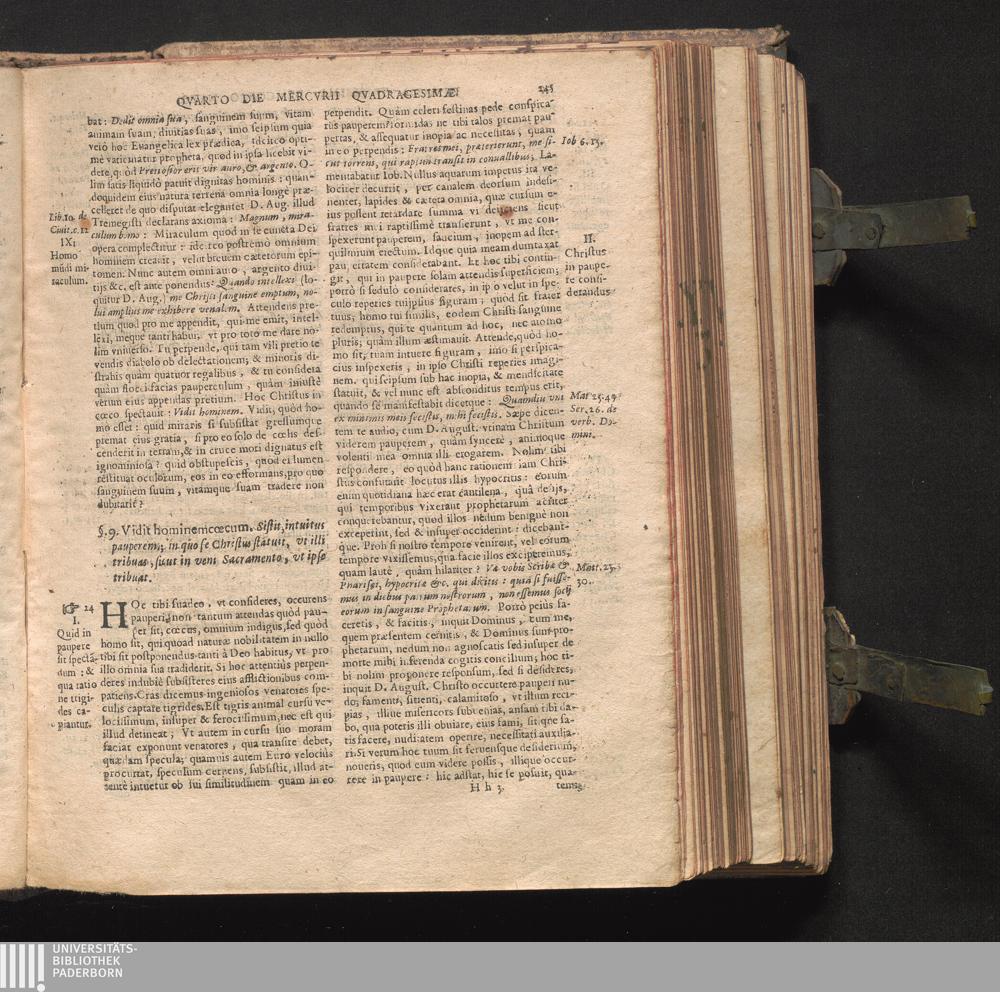 QVARTO DIE MERCVRII QVADRAGESIMÆ
245
bat: Dedit omnia sua, sanguinem suum, vitam
animam suam, diuitias suas, imo seipsum quia
verò hoc Euangelica lex prædica, idcirco opti-
mè vaticinatur propheta, quod in ipsa licebit vi-
dere, quòd Pretiosior erit vir auro, & argento. O-
lim satis liquidò patuit dignitas hominis: quan-
doquidem eius natura terrena omnia longè præ-
celleret de quo disputat eleganter D. Aug. illud
Tremegisti declarans axioma: Magnum, mira-
culum homo: Miraculum quod in se cuncta Dei
opera complectitur: idcirco postremò omnium
hominem creauit, velut breuem cæterorum epi-
tomen. Nunc autem omni auro, argento diui-
tijs &c. est ante ponendus: Quando intellexi (lo-
quitur D. Aug.) me Christi sanguine emptum, no-
lui amplius me exhibere venalem. Attendens pre-
tium quod pro me appendit, qui me emit, intel-
lexi, meque tanti habui, vt pro toto me dare no-
lim vniuerso. Tu perpende, qui tam vili pretio te
vendis diabolo ob delectationem; & minoris di-
strahis quàm quatuor regalibus, & tu considera
quàm flocci facias pauperculum, quàm iniustè
verum eius appendas pretium. Hoc Christus in
cœco spectauit: Vidit hominem. Vidit, quòd ho-
mo esset: quid miraris si subsistat gressumque
premat eius gratia, si pro eo solo de cœlis des-
cenderit in terram, & in cruce mori dignatus est
ignominiosa? quid obstupescis, quod ei lumen
restituat oculorum, eos in eo efformans, pro quo
sanguinem suum, vitamque suam tradere non
dubitarit?
Lib. 10. de
Ciuit. c. 12
IXI
Homo
mūdi mi-
raculum.
§. 9. Vidit hominem cœcum. Sistit, intuitus
pauperem, in quo se Christus statuit, vt illi
tribuas, sicut in veni Sacramento, vt ipse
tribuat.
24
I.
Quid in
paupere
sit spectā-
dum: &
qua ratio
ne trigi-
des ca-
piantur.
HOc tibi suadeo, vt consideres, occurens
pauperi, non tantum attendas quòd pau-
per sit, cœcus, omnium indigus, sed quòd
homo sit, qui quoad naturæ nobilitatem in nullo
tibi sit postponendus tanti à Deo habitus, vt pro
illo omnia sua tradiderit. Si hoc attentiùs perpen-
deres indubiè subsisteres eius afflictionibus com-
patiens. Cras dicemus ingeniosos venatores spe-
culis captare tigrides. Est tigris animal cursu ve-
locissimum, insuper & ferocissimum, nec est qui
illud detineat; Vt autem in cursu suo moram
faciat exponunt venatores, qua transire debet,
quædam specula; quamuis autem Euro velociùs
procurrat, speculum cernens, subsistit, illud at-
tentè intuetur ob sui similitudinem quam in eo
perpendit. Quàm celeri festinas pede conspica-
tus pauperem formidas ne tibi talos premat pau-
pertas, & assequatur inopia ac necessitas, quàm
in eo perpendis: Fratres mei, præterierunt, me si-
cut torrens, qui raptim transit in conuallibus. La-
mentabatur Iob. Nullus aquarum impetus ita ve-
lociter decurrit, per canalem deorsum indesi-
nenter, lapides & cætera omnia, quæ cursum e-
ius possent retardare summa vi deijciens sicut
fratres mei raptissimè transierunt, vt me con-
spexerunt pauperem, saucium, inopem ad ster-
quilinium erectum. Idque quia meam dumtaxat
pau, ertatem considerabant. Et hoc tibi contin-
git, qui in paupere solam attendis superficiem;
porrò si sedulò considerares, in ipso velut in spe-
culo reperies tuijpsius figuram; quod sit frater
tuus, homo tui similis, eodem Christi sanguine
redemptus, qui te quantum ad hoc, nec atomo
pluris; quàm illum æstimauit. Attende, quòd ho-
mo sit, tuam intuere figuram, imò si perspica-
cius inspexeris, in ipso Christi reperies imagi-
nem. qui seipsum sub hac inopia, & mendicitate
statuit, & vel nunc est absconditus tempus erit,
quando se manifestabit dicetque: Quamdiu vni
ex minimis meis fecistis, mihi fecistis. Sæpe dicen-
tem te audio, cum D. August. vtinam Christum
viderem pauperem, quàm syncerè, animoque
volenti mea omnia illi erogarem. Nolim tibi
respondere, eo quòd hanc rationem iam Chri-
stus confutarit locutus illis hypocritis: eorum
enim quotidiana hæc erat cantilena, quâ de ijs,
qui temporibus vixerant prophetarum acriter
conquerebantur, quod illos nedum benignè non
exceperint, sed & insuper occiderint: dicebant-
que. Proh si nostro tempore venirent, vel eorum
tempore vixissemus, qua facie illos exciperemus,
quam lautè, quàm hilariter? Væ vobis Scribæ &
Pharisæi, hypocritæ &c. qui dicitis: quia si fuisse-
mus in diebus patrum nostrorum, non essemus socij
eorum in sanguine Prophetarum. Porrò peiùs fa-
ceretis, & facitis, inquit Dominus, cum me,
quem præsentem cernitis, & Dominus sum pro-
phetarum, nedum non agnoscatis sed insuper de
morte mihi inferenda cogitis concilium; hoc ti-
bi nolim proponere responsum, sed si desideres,
inquit D. August. Christo occurrere pauperi nu-
do, famenti, sitienti, calamitoso, vt illum reci-
pias, illiue misericors subuenias, ansam tibi da-
bo, qua poteris illi obuiare, eius fami, sitique sa-
tisfacere, nuditatem operire, necessitati auxilia-
ri. Si verum hoc tuum sit feruensque desiderium,
noueris, quod eum videre possis, illique occur-
rere in paupere: hic adstat, hic se posuit, qua-
Iob 6. 15.
II.
Christus
in paupe-
re consi-
derandus
Mat 25. 49
Ser. 26. de
verb. Do-
mini.
Matt. 23.
30.
H h 3.
tenus
UNIVERSITÄTS-
BIBLIOTHEK
PADERBORN